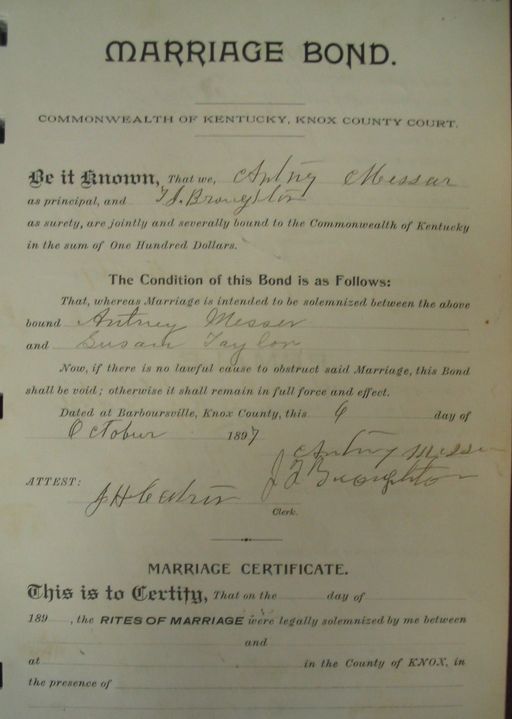 MARRIAGE BOND.
COMMONWEALTH OF KENTUCKY, KNOX COUNTY COURT.
Be it Known, That we, Antney Messer
as principal, and J. J. Broughton
as surety, are jointly and severally bound to the Commonwealth of Kentucky
in the sum of One Hundred Dollars.
The Condition of this Bond is as Follows:
That, whereas Marriage is intended to be solemnized between the above
bound Antney Messer
and Susan Taylor
Now, if there is no lawful cause to obstruct said Marriage, this Bond
shall be void; otherwise it shall remain in full force and effect.
Dated at Barboursville, Knox County, this 6 day of
October 1897
Antney Messer
Broughton
ATTEST:
Clerk.
MARRIAGE CERTIFICATE.
This is to Certify, That on the day of
189 , the RITES OF MARRIAGE were legally solemnized by me between
and
at in the County of KNOX, in
the presence of